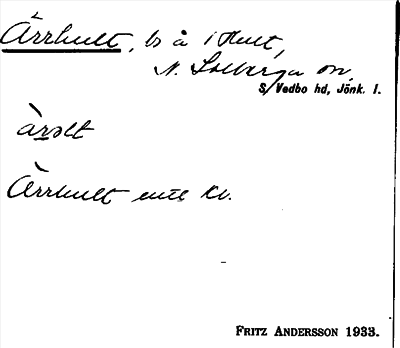 Ärrhult, ls å 1 Hult,
N. Solberga sn,
S/Vedbo hd, Jönk. l.
àrəlt
Ärrhult enl. kb.
FRITZ ANDERSSON 1933.